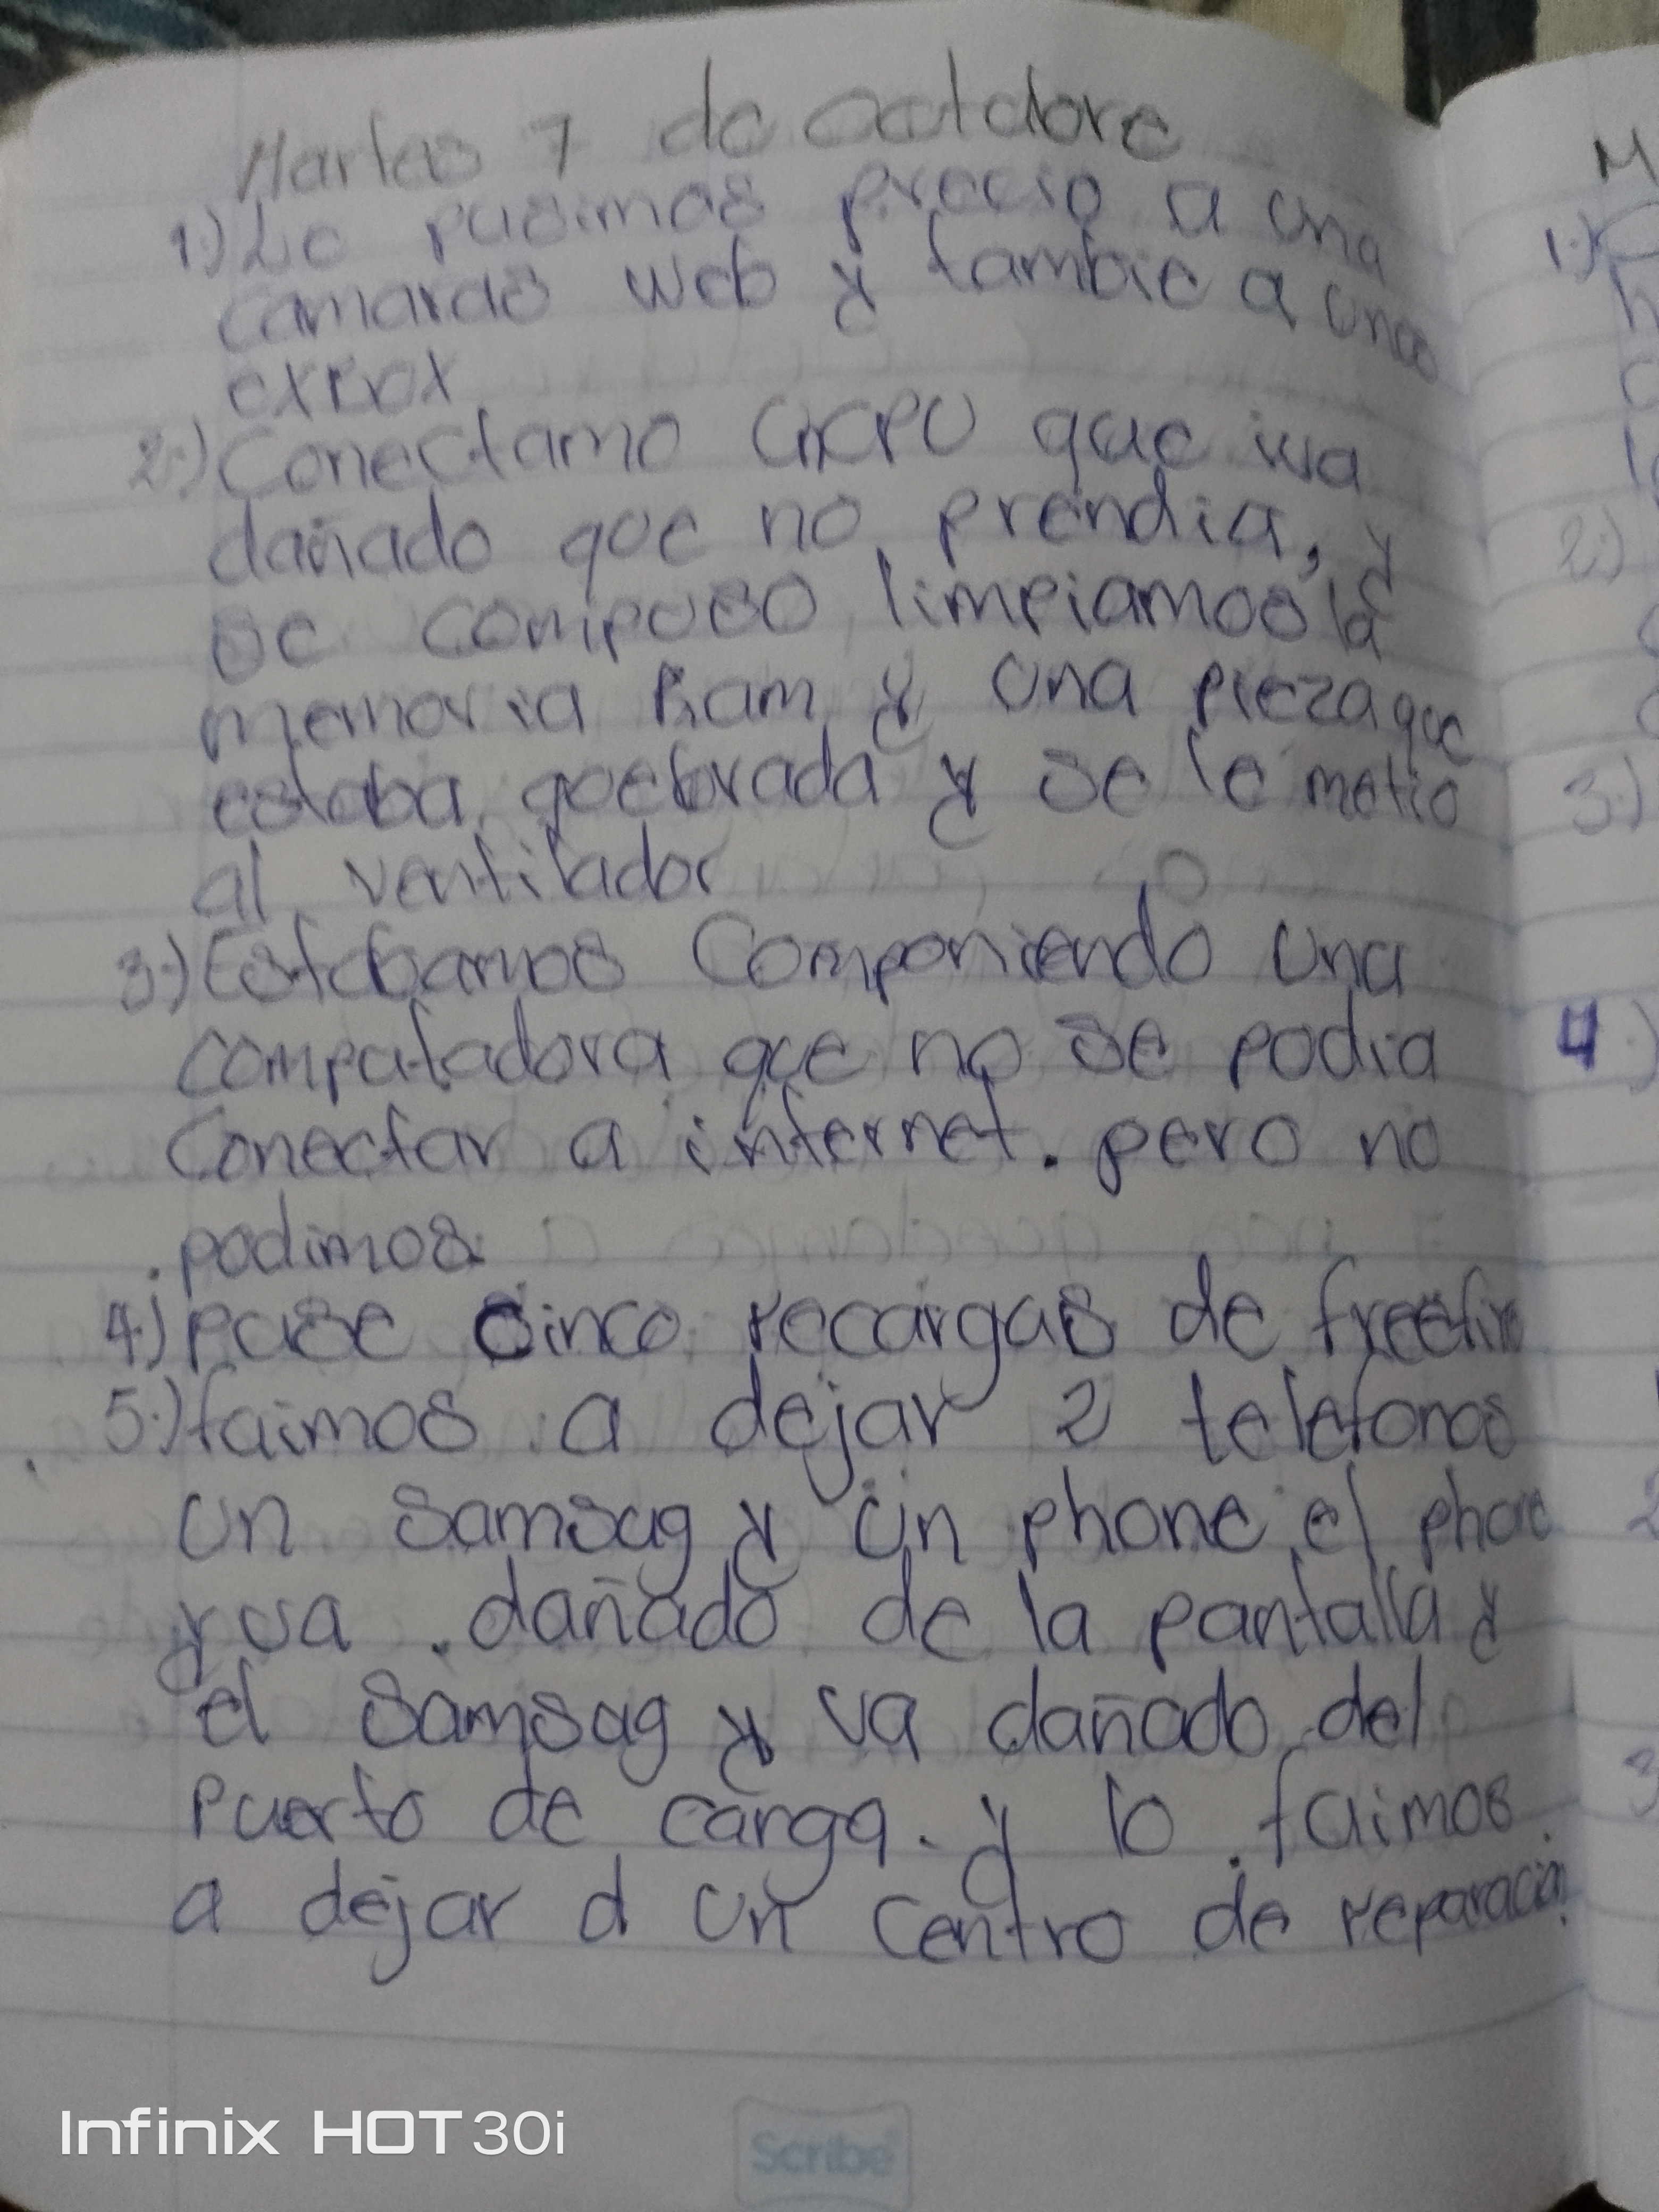 Martes 7 de octubre
1.) Le pusimos precio a una
camaras web y tambie a unos
exbox
2.) Conectamo un CPU que iva
dañado que no prendia, y
se compuso limpiamos la
memoria Ram y una pieza que
estaba quebrada y se le metio
al ventilador
3.) Estabamos Componiendo una
computadora que no se podia
Conectar a internet. pero no
podimos
4.) puse cinco recargas de freefire
5.) fuimos a dejar 2 telefonos
un Samsug y un phone el phone
yva dañado de la pantalla y
el Samsug y va dañado del
puerto de carga. y lo fuimos
a dejar a un Centro de reparacion
M
1.)
2.)
3.)
4.)
Infinix HOT 30i
Scribe